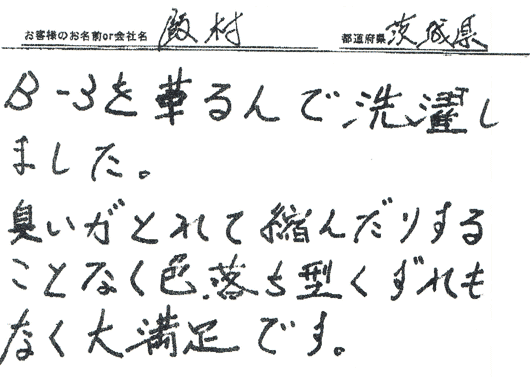 お客様のお名前or会社名 殿村 都道府県 茨城県
B-3を革るんで洗濯し
ました。
臭いがとれて縮んだりする
ことなく色落ち型くずれも
なく大満足です。